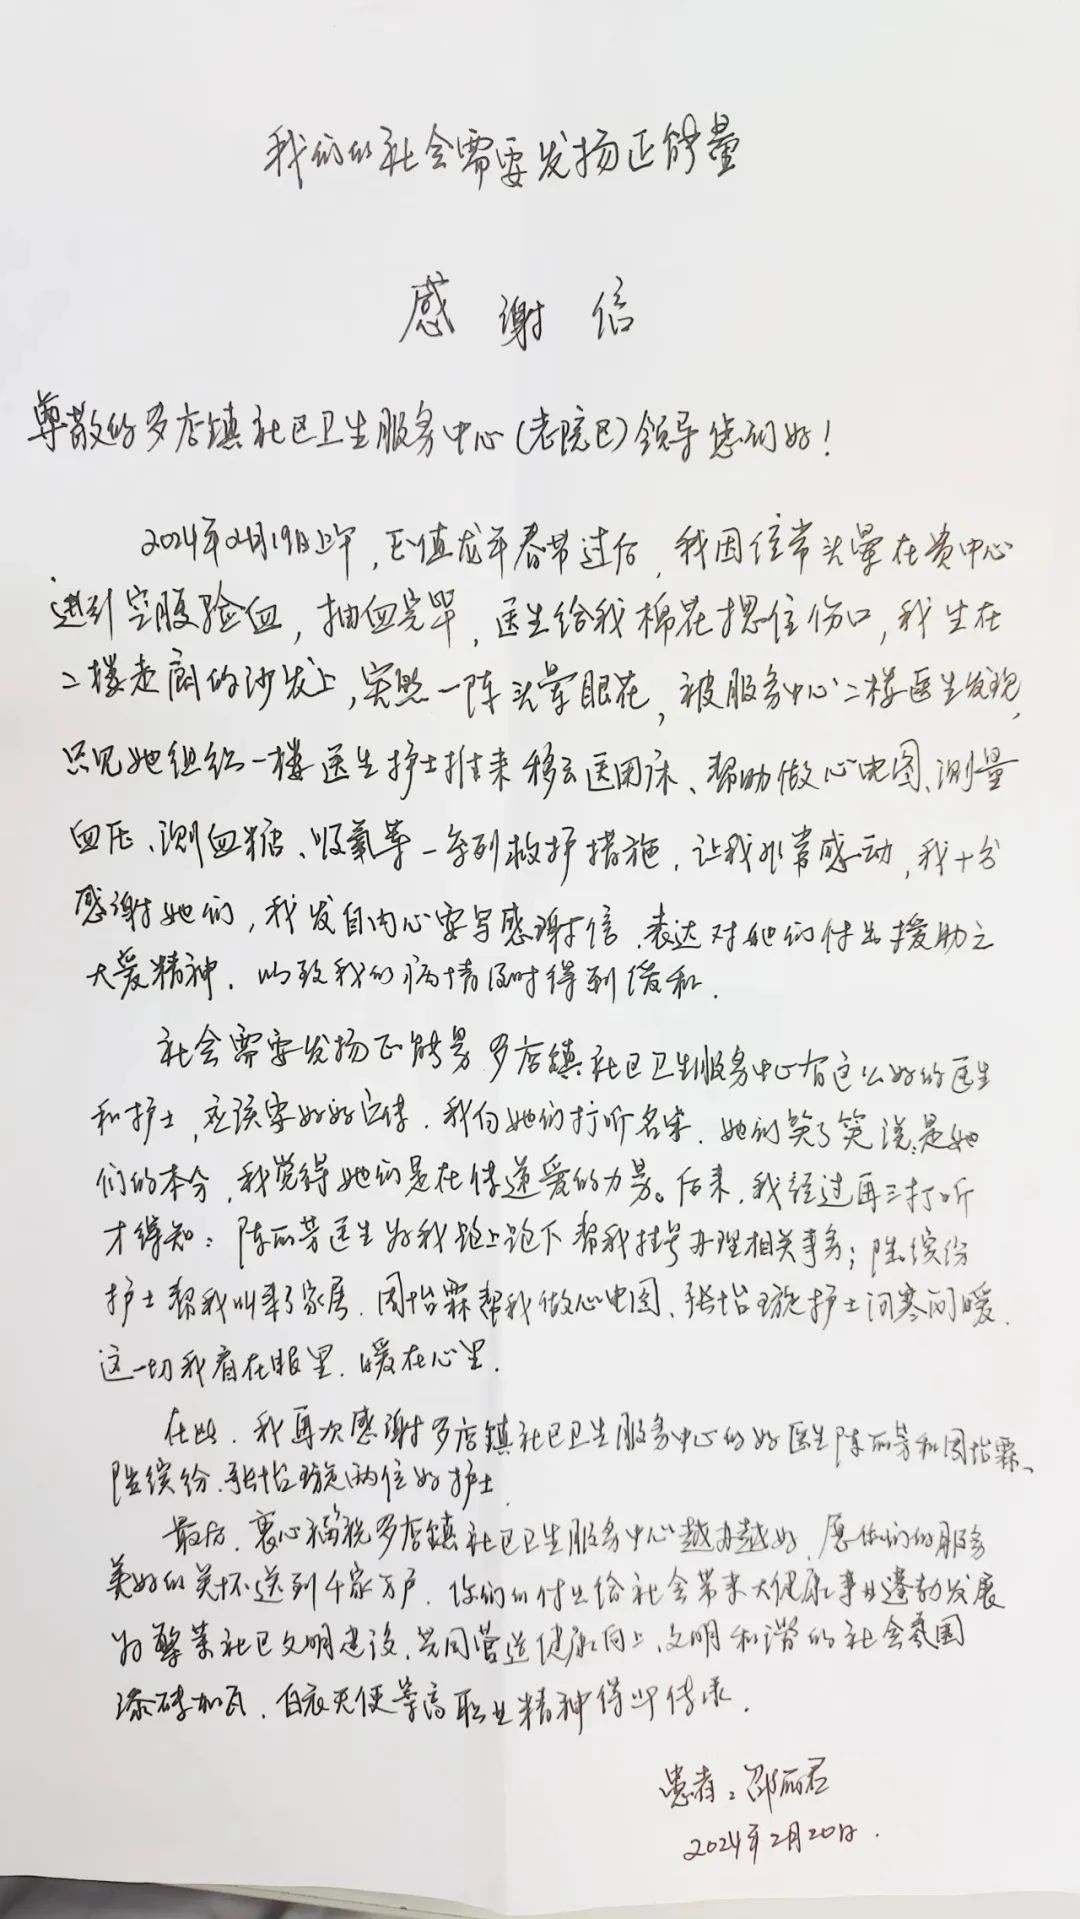 我们的社会需要发扬正能量
感谢信
尊敬的罗店镇社区卫生服务中心(老院区)领导您们好!
2024年2月19日上午,正值龙年春节过后,我因经常头晕在贵中心
进到空腹验血,抽血完毕,医生给我棉花摁住伤口,我坐在
二楼走廊的沙发上,突然一阵头晕眼花,被服务中心二楼医生发现,
只见她组织一楼医生护士推来移动医用床、帮助做心电图、测量
血压、测血糖、吸氧等一系列救护措施,让我非常感动,我十分
感谢她们,我发自内心要写感谢信,表达对她们付出援助之
大爱精神,以致我的病情及时得到缓和.
社会需要发扬正能量,罗店镇社区卫生服务中心有这么好的医生
和护士,应该要好好宣传.我向她们打听名字,她们笑了笑说:是她
们的本分,我觉得她们是在传递爱的力量。后来,我经过再三打听
才得知:陈丽芳医生为我跑上跑下帮我挂号办理相关事务;陆缤纷
护士帮我叫来了家属,周怡霖帮我做心电图,张怡璇护士问寒问暖,
这一切我看在眼里,暖在心里.
在此,我再次感谢罗店镇社区卫生服务中心的好医生陈丽芳和周怡霖、
陆缤纷、张怡璇两位好护士.
最后,衷心祝罗店镇社区卫生服务中心越办越好,愿你们的服务
美好的关怀送到千家万户,你们的付出给社会带来大健康事业蓬勃发展
为繁荣社区文明建设,共同营造健康向上、文明和谐的社会氛围
添砖加瓦,白衣天使崇高职业精神得以传承.
患者:邵丽君
2024年2月20日.